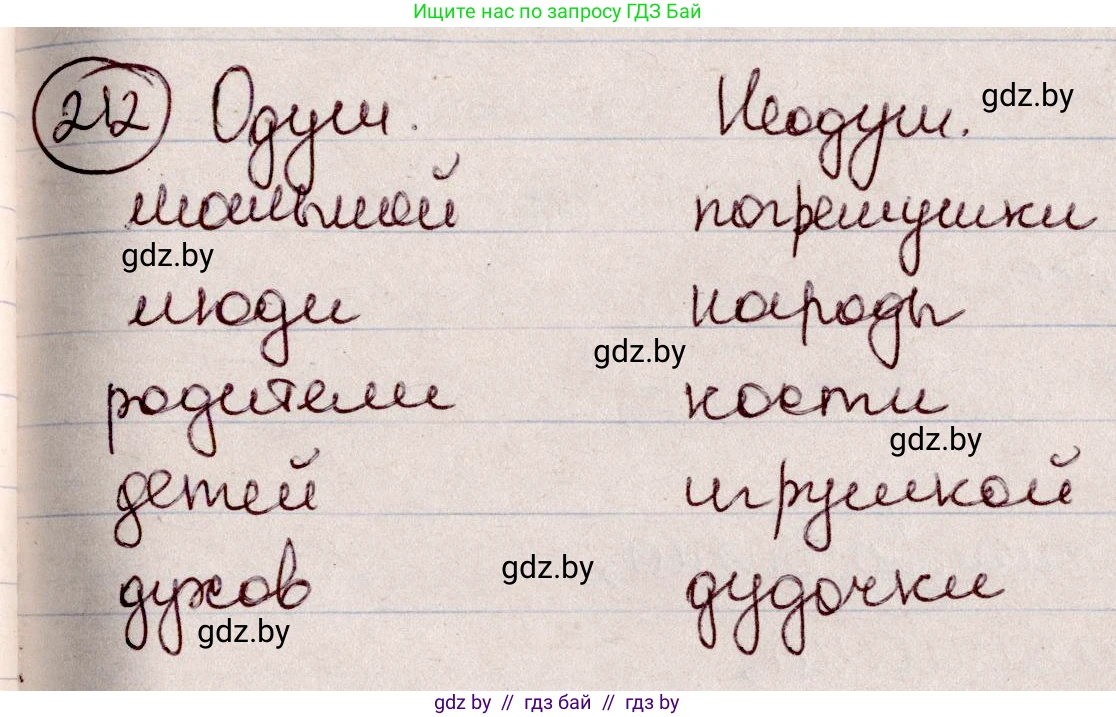 Ищите нас по запросу ГДЗ Бай
212 Одуш. Неодуш. gdz.by
малышей погремушки
gdz.by
люди народы
gdz.by
родители кости
gdz.by
детей игрушкой
gdz.by
духов дудочки
gdz.by
gdz by // gdz бай // гдз by